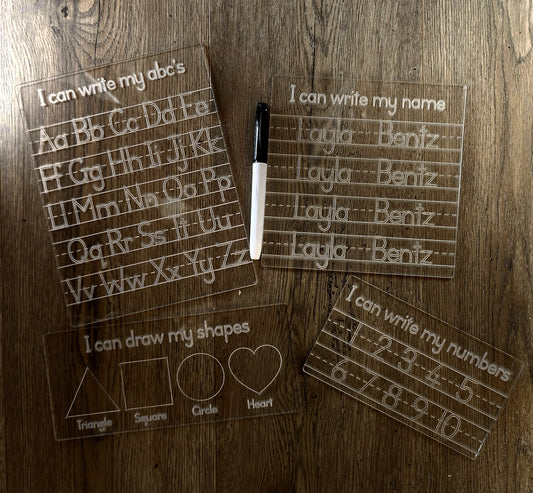 I can write my abc's
Aa Bb Cc Dd Ee
Ff Gg Hh Ii Jj Kk
Ll Mm Nn Oo Pp
Qq Rr Ss Tt Uu
Vv Ww Xx Yy Zz
I can write my name
Layla Bentz
Layla Bentz
Layla Bentz
Layla Bentz
I can draw my shapes
Triangle Square Circle Heart
I can write my numbers
1 2 3 4 5
6 7 8 9 10